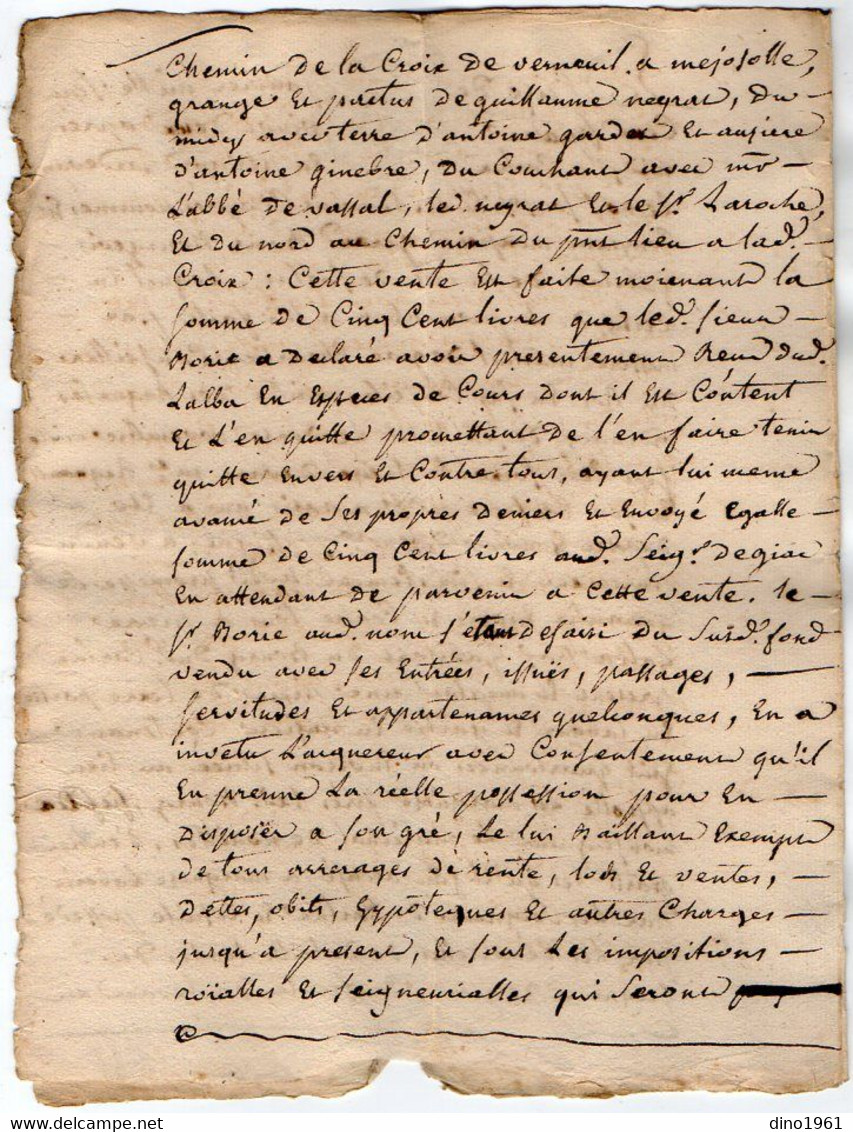 Chemin de la Croix de verneuil a mejosolle,
grange Et partus de guillaume negrat, Du
midy avec terre d'antoine garde Et
d'antoine ginebre, Du Couchant avec mr
L'abbé de vassal, led. negrat Et le Sr. Laroche,
Et du nord au Chemin Du pnt lieu a lad.
Croix : Cette vente Est faite moienant la
somme de Cinq Cent livres que led. sieur
Borie a Declaré avoir presentement Reçu dud.
Lalba En Especes de Cours dont il Est Content
Et L'en quitte promettant de l'en faire tenir
quitte Envers Et Contre tous, ayant lui meme
avancé de Ses propres Deniers Et Envoyé Egalle
somme de Cinq Cent livres aud. Seigr. De giac
En attendant de parvenir a Cette vente. le
Sr. Borie aud. nom s'étant Desaisi du Susd. fond
vendu avec ses Entrées, issuës, passages,
servitudes Et appartenances quelconques, En a
invetu L'acquereur avec Consentement qu'il
En prenne La réelle possession pour En
Disposer a son gré, Le lui Baillant Exempt
de tous arrerages de rente, lods Et ventes,
Dettes, obits, hypoteques Et autres Charges
jusqu'a present, Et sous Les impositions
roïalles Et seigneurialles qui Seront
dino1961